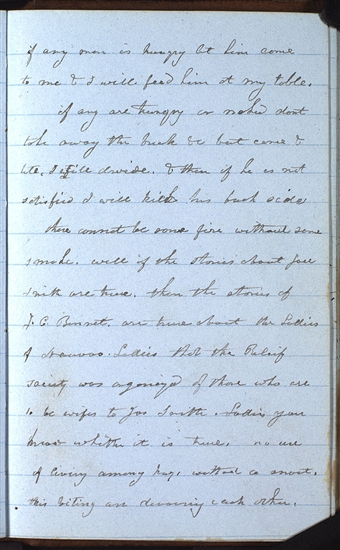 if any man is hungry let him come
to me & I will feed him at my table.
if any are hungry or naked dont
take away the brick &c but come &
tell, I will divide. & then if he is not
satisfied I will kick his back side
there cannot be some fire without some
smoke. well if the stories about Jos
Smith are true. then the stories of
J. C. Bennet. are true about the Ladies
of Nauvoo. Ladies that the Relief
society was organized of those who are
to be wifes to Jos Smith. Ladies you
know whether it is true. no use
of living among hogs without a snout.
this biting and devouring each other.